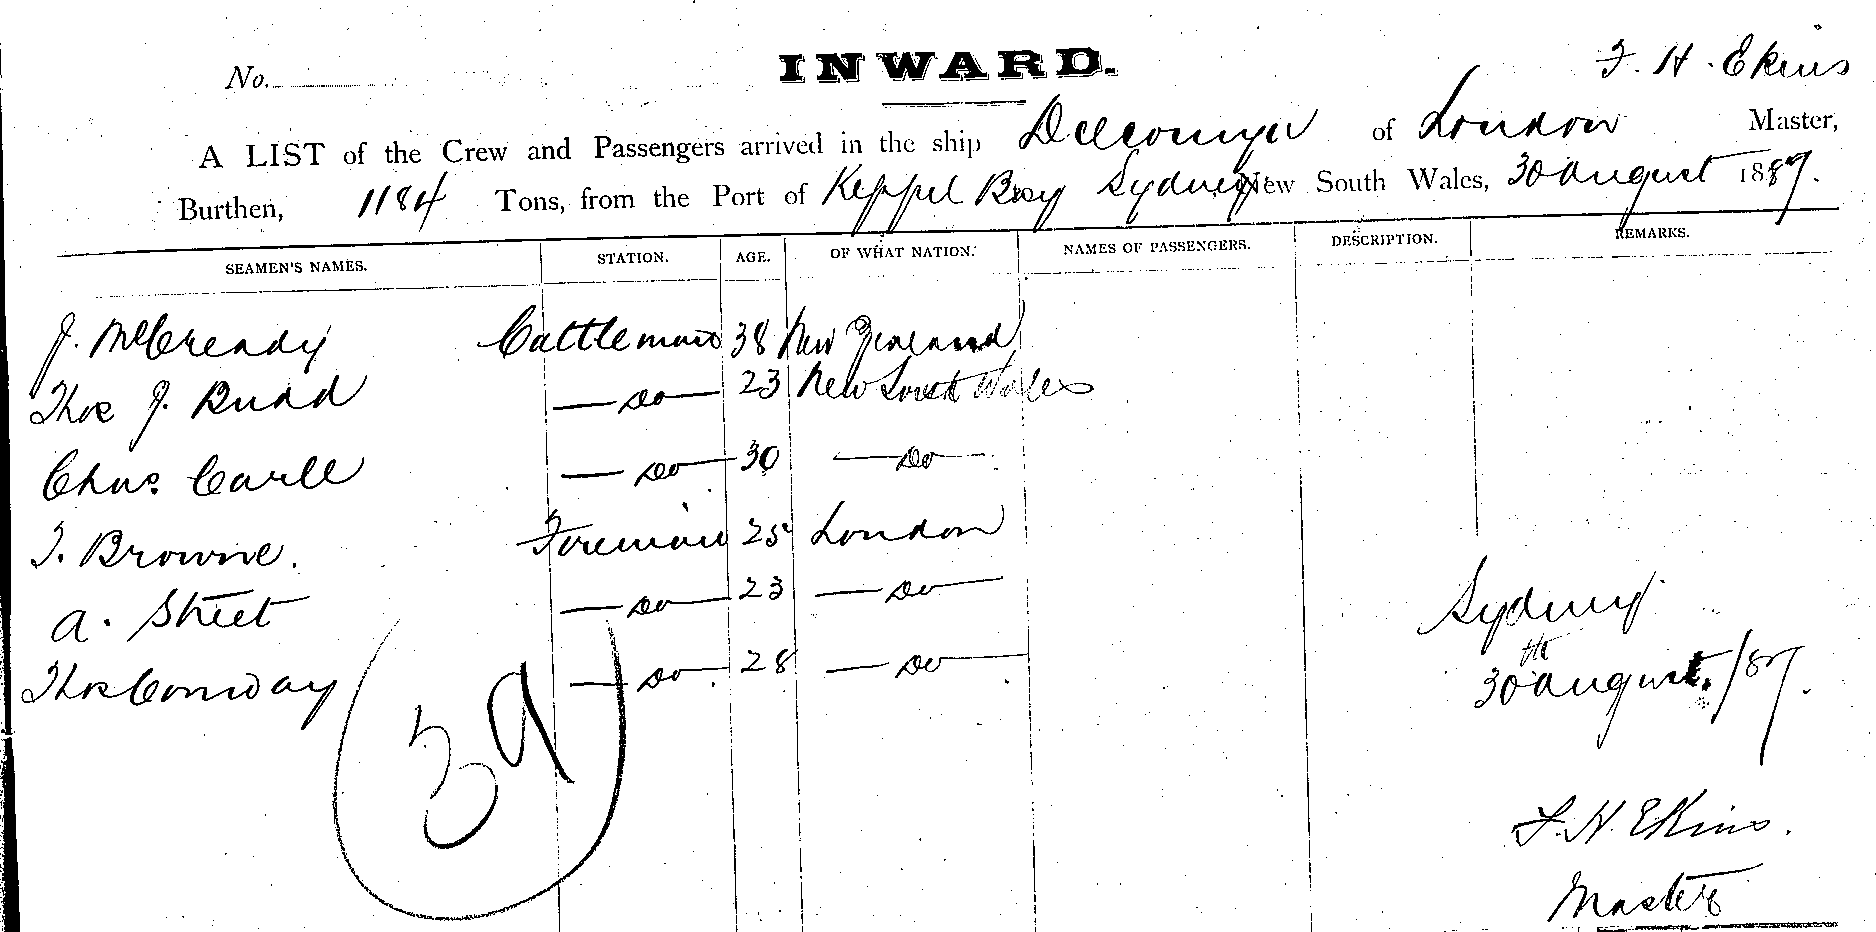 INWARD.
No.
F. H. Ekins
A LIST of the Crew and Passengers arrived in the ship Dilcomya of London Master,
Burthen, 1184 Tons, from the Port of Keppel Bay Sydney New South Wales, 30 August 1887.
SEAMEN'S NAMES. STATION. AGE. OF WHAT NATION. NAMES OF PASSENGERS. DESCRIPTION. REMARKS.
J. McCready Cattleman 38 New Zealand
Thos J. Rudd — Do — 23 New South Wales
Chas. Carll — Do — 30 — Do —
T. Browne. 25 London
A. Street — Do — 23 — Do —
Thos Conway — Do — 28 — Do —
39
Sydney
30th August. /87.
F. H. Ekins.
Master